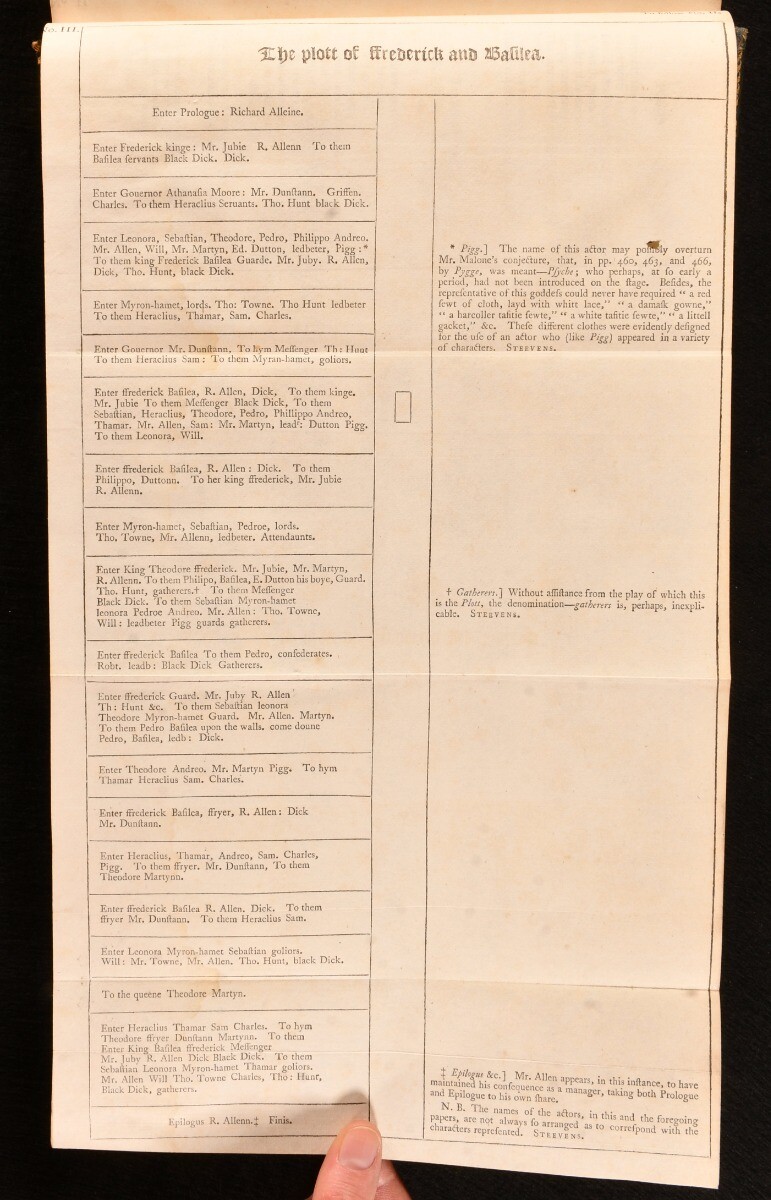 No. III.
The plott of ffrederick and Baſilea.
Enter Prologue: Richard Alleine.
Enter Frederick kinge: Mr. Jubie R. Allenn To them
Baſilea ſervants Black Dick. Dick.
Enter Gouernor Athanaſia Moore: Mr. Dunſtann. Griffen.
Charles. To them Heraclius Seruants. Tho. Hunt black Dick.
Enter Leonora, Sebaſtian, Theodore, Pedro, Philippo Andreo.
Mr. Allen, Will, Mr. Martyn, Ed. Dutton, ledbeter, Pigg:*
To them king Frederick Baſilea Guarde. Mr. Juby. R. Allen,
Dick, Tho. Hunt, black Dick.
Enter Myron-hamet, lords. Tho: Towne. Tho Hunt ledbeter
To them Heraclius, Thamar, Sam. Charles.
Enter Gouernor Mr. Dunſtann. To hym Meſſenger Th: Hunt
To them Heraclius Sam: To them Myran-hamet, goliors.
Enter ffrederick Baſilea, R. Allen, Dick, To them kinge.
Mr. Jubie To them Meſſenger Black Dick, To them
Sebaſtian, Heraclius, Theodore, Pedro, Phillippo Andreo,
Thamar. Mr. Allen, Sam: Mr. Martyn, leadr: Dutton Pigg.
To them Leonora, Will.
Enter ffrederick Baſilea, R. Allen: Dick. To them
Philippo, Duttonn. To her king ffrederick, Mr. Jubie
R. Allenn.
Enter Myron-hamet, Sebaſtian, Pedroe, lords.
Tho. Towne, Mr. Allenn, ledbeter. Attendaunts.
Enter King Theodore ffrederick. Mr. Jubie, Mr. Martyn,
R. Allenn. To them Philipo, Baſilea, E. Dutton his boye, Guard.
Tho. Hunt, gatherers.† To them Meſſenger
Black Dick. To them Sebaſtian Myron-hamet
leonora Pedroe Andreo. Mr. Allen: Tho. Towne,
Will: leadbeter Pigg guards gatherers.
Enter ffrederick Baſilea To them Pedro, confederates.
Robt. leadb: Black Dick Gatherers.
Enter ffrederick Guard. Mr. Juby R. Allen
Th: Hunt &c. To them Sebaſtian leonora
Theodore Myron-hamet Guard. Mr. Allen. Martyn.
To them Pedro Baſilea upon the walls. come doune
Pedro, Baſilea, ledb: Dick.
Enter Theodore Andreo. Mr. Martyn Pigg. To hym
Thamar Heraclius Sam. Charles.
Enter ffrederick Baſilea, ffryer, R. Allen: Dick
Mr. Dunſtann.
Enter Heraclius, Thamar, Andreo, Sam. Charles,
Pigg. To them ffryer. Mr. Dunſtann, To them
Theodore Martynn.
Enter ffrederick Baſilea R. Allen. Dick. To them
ffryer Mr. Dunſtann. To them Heraclius Sam.
Enter Leonora Myron-hamet Sebaſtian goliors.
Will: Mr. Towne, Mr. Allen. Tho. Hunt, black Dick.
To the queene Theodore Martyn.
Enter Heraclius Thamar Sam Charles. To hym
Theodore ffryer Dunſtann Martynn. To them
Enter King Baſilea ffrederick Meſſenger
Mr. Juby R. Allen Dick Black Dick. To them
Sebaſtian Leonora Myron-hamet Thamar goliors.
Mr. Allen Will Tho. Towne Charles, Tho: Hunt,
Black Dick, gatherers.
Epilogus R. Allenn.‡ Finis.
* Pigg.] The name of this actor may poſſibly overturn
Mr. Malone's conjecture, that, in pp. 460, 463, and 466,
by Pygge, was meant—Pſyche; who perhaps, at ſo early a
period, had not been introduced on the ſtage. Beſides, the
repreſentative of this goddeſs could never have required " a red
ſewt of cloth, layd with whitt lace," " a damaſk gowne,"
" a harcoller tafitie ſewte," " a white tafitie ſewte," " a littell
gacket," &c. Theſe different clothes were evidently deſigned
for the uſe of an actor who (like Pigg) appeared in a variety
of characters. STEEVENS.
† Gatherers.] Without aſſiſtance from the play of which this
is the Plott, the denomination—gatherers is, perhaps, inexpli-
cable. STEEVENS.
‡ Epilogus &c.] Mr. Allen appears, in this inſtance, to have
maintained his conſequence as a manager, taking both Prologue
and Epilogue to his own ſhare.
N. B. The names of the actors, in this and the foregoing
papers, are not always ſo arranged as to correſpond with the
characters repreſented. STEEVENS.